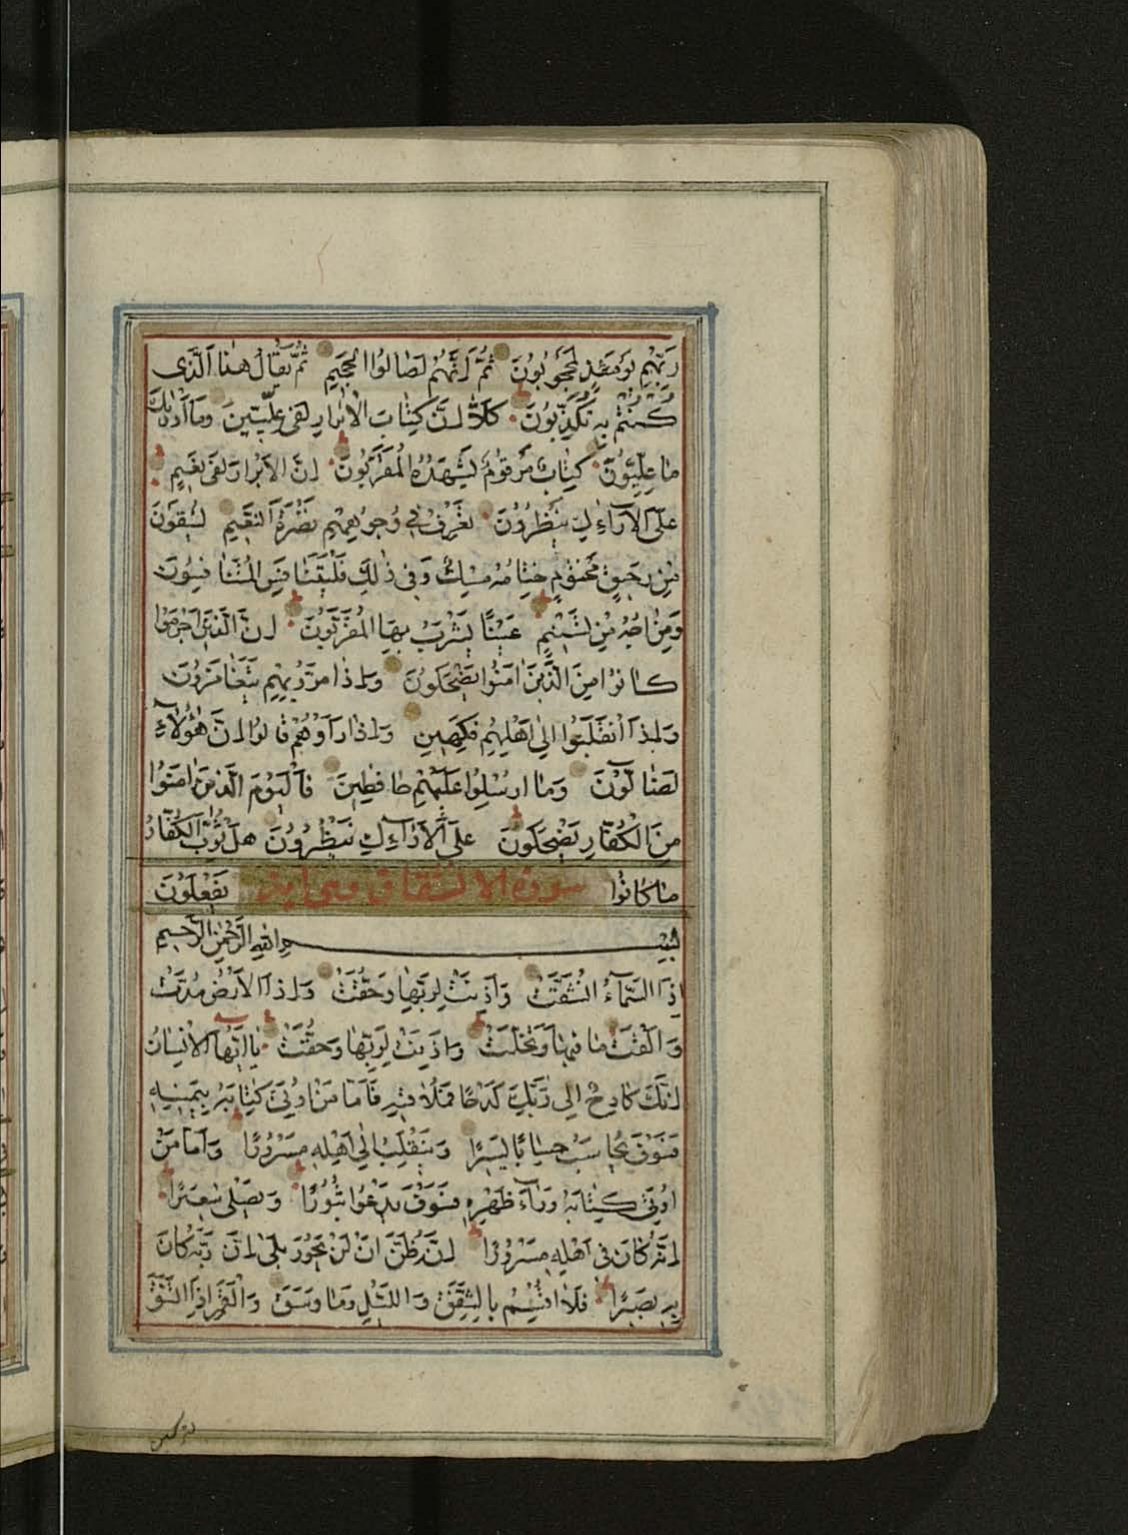 رَبِّهِمْ يَوْمَئِذٍ لَمَحْجُوبُونَ ثُمَّ إِنَّهُمْ لَصَالُوا الْجَحِيمِ ثُمَّ يُقَالُ هٰذَا الَّذِى
كُنْتُمْ بِهِ تُكَذِّبُونَ كَلَّا إِنَّ كِتَابَ الْأَبْرَارِ لَفِى عِلِّيِّينَ وَمَا أَدْرٰيكَ
مَا عِلِّيُّونَ كِتَابٌ مَرْقُومٌ يَشْهَدُهُ الْمُقَرَّبُونَ إِنَّ الْأَبْرَارَ لَفِى نَعِيمٍ
عَلَى الْأَرَآئِكِ يَنْظُرُونَ تَعْرِفُ فِى وُجُوهِهِمْ نَضْرَةَ النَّعِيمِ يُسْقَوْنَ
مِنْ رَحِيقٍ مَخْتُومٍ خِتَامُهُ مِسْكٌ وَفِى ذٰلِكَ فَلْيَتَنَافَسِ الْمُتَنَافِسُونَ
وَمِزَاجُهُ مِنْ تَسْنِيمٍ عَيْنًا يَشْرَبُ بِهَا الْمُقَرَّبُونَ إِنَّ الَّذِينَ أَجْرَمُوا
كَانُوا مِنَ الَّذِينَ اٰمَنُوا يَضْحَكُونَ وَإِذَا مَرُّوا بِهِمْ يَتَغَامَزُونَ
وَإِذَا انْقَلَبُوا إِلٰى أَهْلِهِمُ فَكِهِينَ وَإِذَا رَأَوْهُمْ قَالُوا إِنَّ هٰؤُلَآءِ
لَضَالُّونَ وَمَا أُرْسِلُوا عَلَيْهِمْ حَافِظِينَ فَالْيَوْمَ الَّذِينَ اٰمَنُوا
مِنَ الْكُفَّارِ يَضْحَكُونَ عَلَى الْأَرَآئِكِ يَنْظُرُونَ هَلْ ثُوِّبَ الْكُفَّارُ
مَا كَانُوا سورة الانشقاق يَفْعَلُونَ
بِسْمِ اللّٰهِ الرَّحْمٰنِ الرَّحِيمِ
إِذَا السَّمَآءُ انْشَقَّتْ وَأَذِنَتْ لِرَبِّهَا وَحُقَّتْ وَإِذَا الْأَرْضُ مُدَّتْ
وَأَلْقَتْ مَا فِيهَا وَتَخَلَّتْ وَأَذِنَتْ لِرَبِّهَا وَحُقَّتْ يَا أَيُّهَا الْإِنْسَانُ
إِنَّكَ كَادِحٌ إِلٰى رَبِّكَ كَدْحًا فَمُلَاقِيهِ فَأَمَّا مَنْ أُوتِىَ كِتَابَهُ بِيَمِينِهِ
فَسَوْفَ يُحَاسَبُ حِسَابًا يَسِيرًا وَيَنْقَلِبُ إِلٰى أَهْلِهِ مَسْرُورًا وَأَمَّا مَنْ
أُوتِىَ كِتَابَهُ وَرَآءَ ظَهْرِهِ فَسَوْفَ يَدْعُوا ثُبُورًا وَيَصْلٰى سَعِيرًا
إِنَّهُ كَانَ فِى أَهْلِهِ مَسْرُورًا إِنَّهُ ظَنَّ أَنْ لَنْ يَحُورَ بَلٰى إِنَّ رَبَّهُ كَانَ
بِهِ بَصِيرًا فَلَا أُقْسِمُ بِالشَّفَقِ وَاللَّيْلِ وَمَا وَسَقَ وَالْقَمَرِ إِذَا اتَّسَقَ
لتركبن